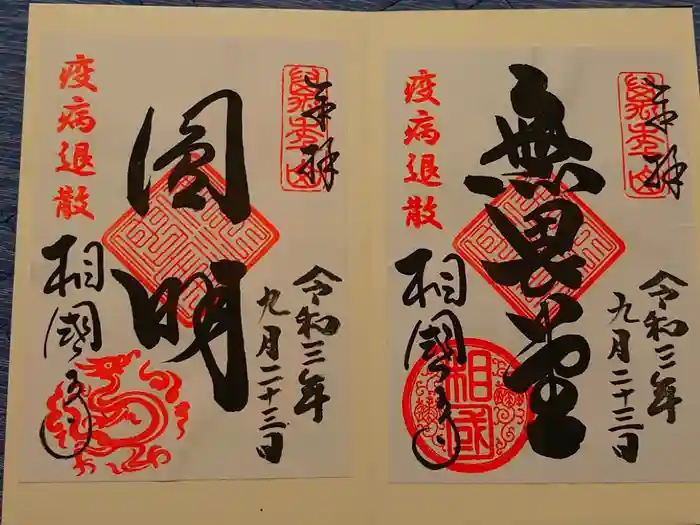 奉拝
無畏堂
疫病退散
相國寺
令和三年
九月二十三日
相國
奉拝
圓明
疫病退散
相國寺
令和三年
九月二十三日